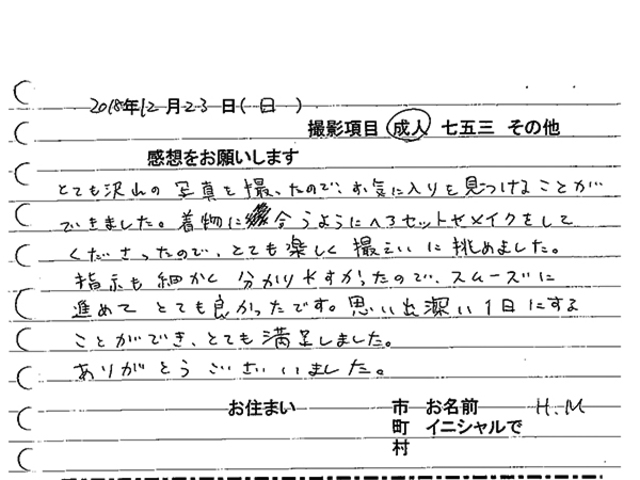 2018年12月23日(日)
撮影項目 成人 七五三 その他
感想をお願いします
とても沢山の写真を撮ったので、お気に入りを見つけることが
できました。着物に合うようにヘアセットやメイクをして
くださったので、とても楽しく撮えいに挑めました。
指示も細かく分かりやすかったので、スムーズに
進めてとても良かったです。思い出深い1日にする
ことができ、とても満足しました。
ありがとうございました。
お住まい 市 お名前 H.M
町 イニシャルで
村